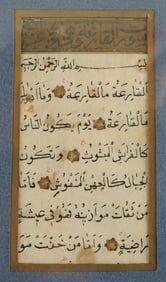 سورة القارعة
بسم الله الرحمن الرحيم
القارعة ما القارعة وما أدريك
ما القارعة يوم يكون الناس
كالفراش المبثوث وتكون
الجبال كالعهن المنفوش فأما
من ثقلت موازينه فهو في عيشة
راضية وأما من خفت موا